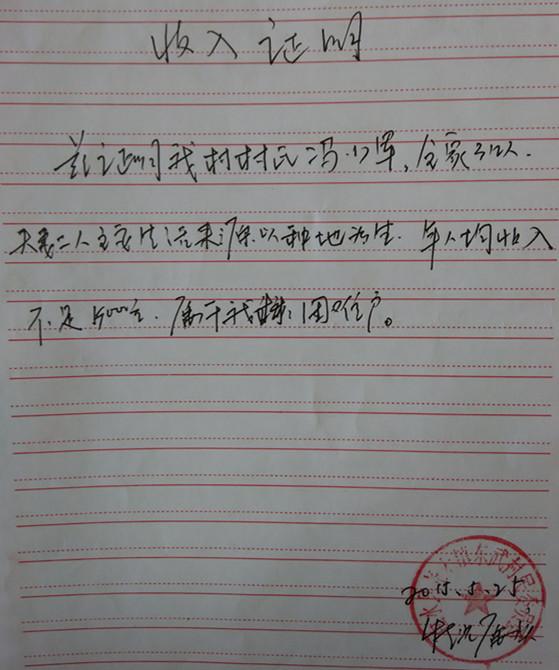 收入证明
兹证明我村村民冯小军,全家3口人.
夫妻二人主要生活来源以种地为生.年人均收入
不足5000元.属于我村困难户。
2015.5.25